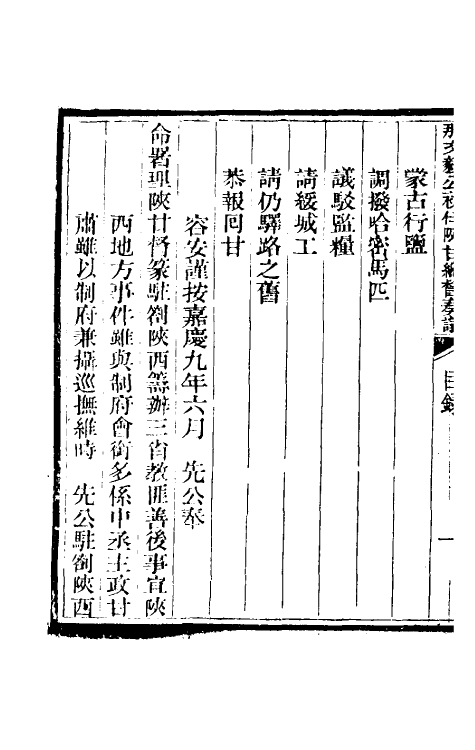 那文毅公初任陝甘總督奏議 目錄 一
蒙古行鹽
調撥哈密馬匹
議駁監糧
請緩城工
請仍驛路之舊
恭報回甘
容安謹按嘉慶九年六月 先公奉
命署理陝甘督篆駐劄陝西籌辦三省教匪善後事宜陝
西地方事件雖與制府會銜多係中丞主政甘
肅雖以制府兼攝巡撫維時 先公駐劄陝西